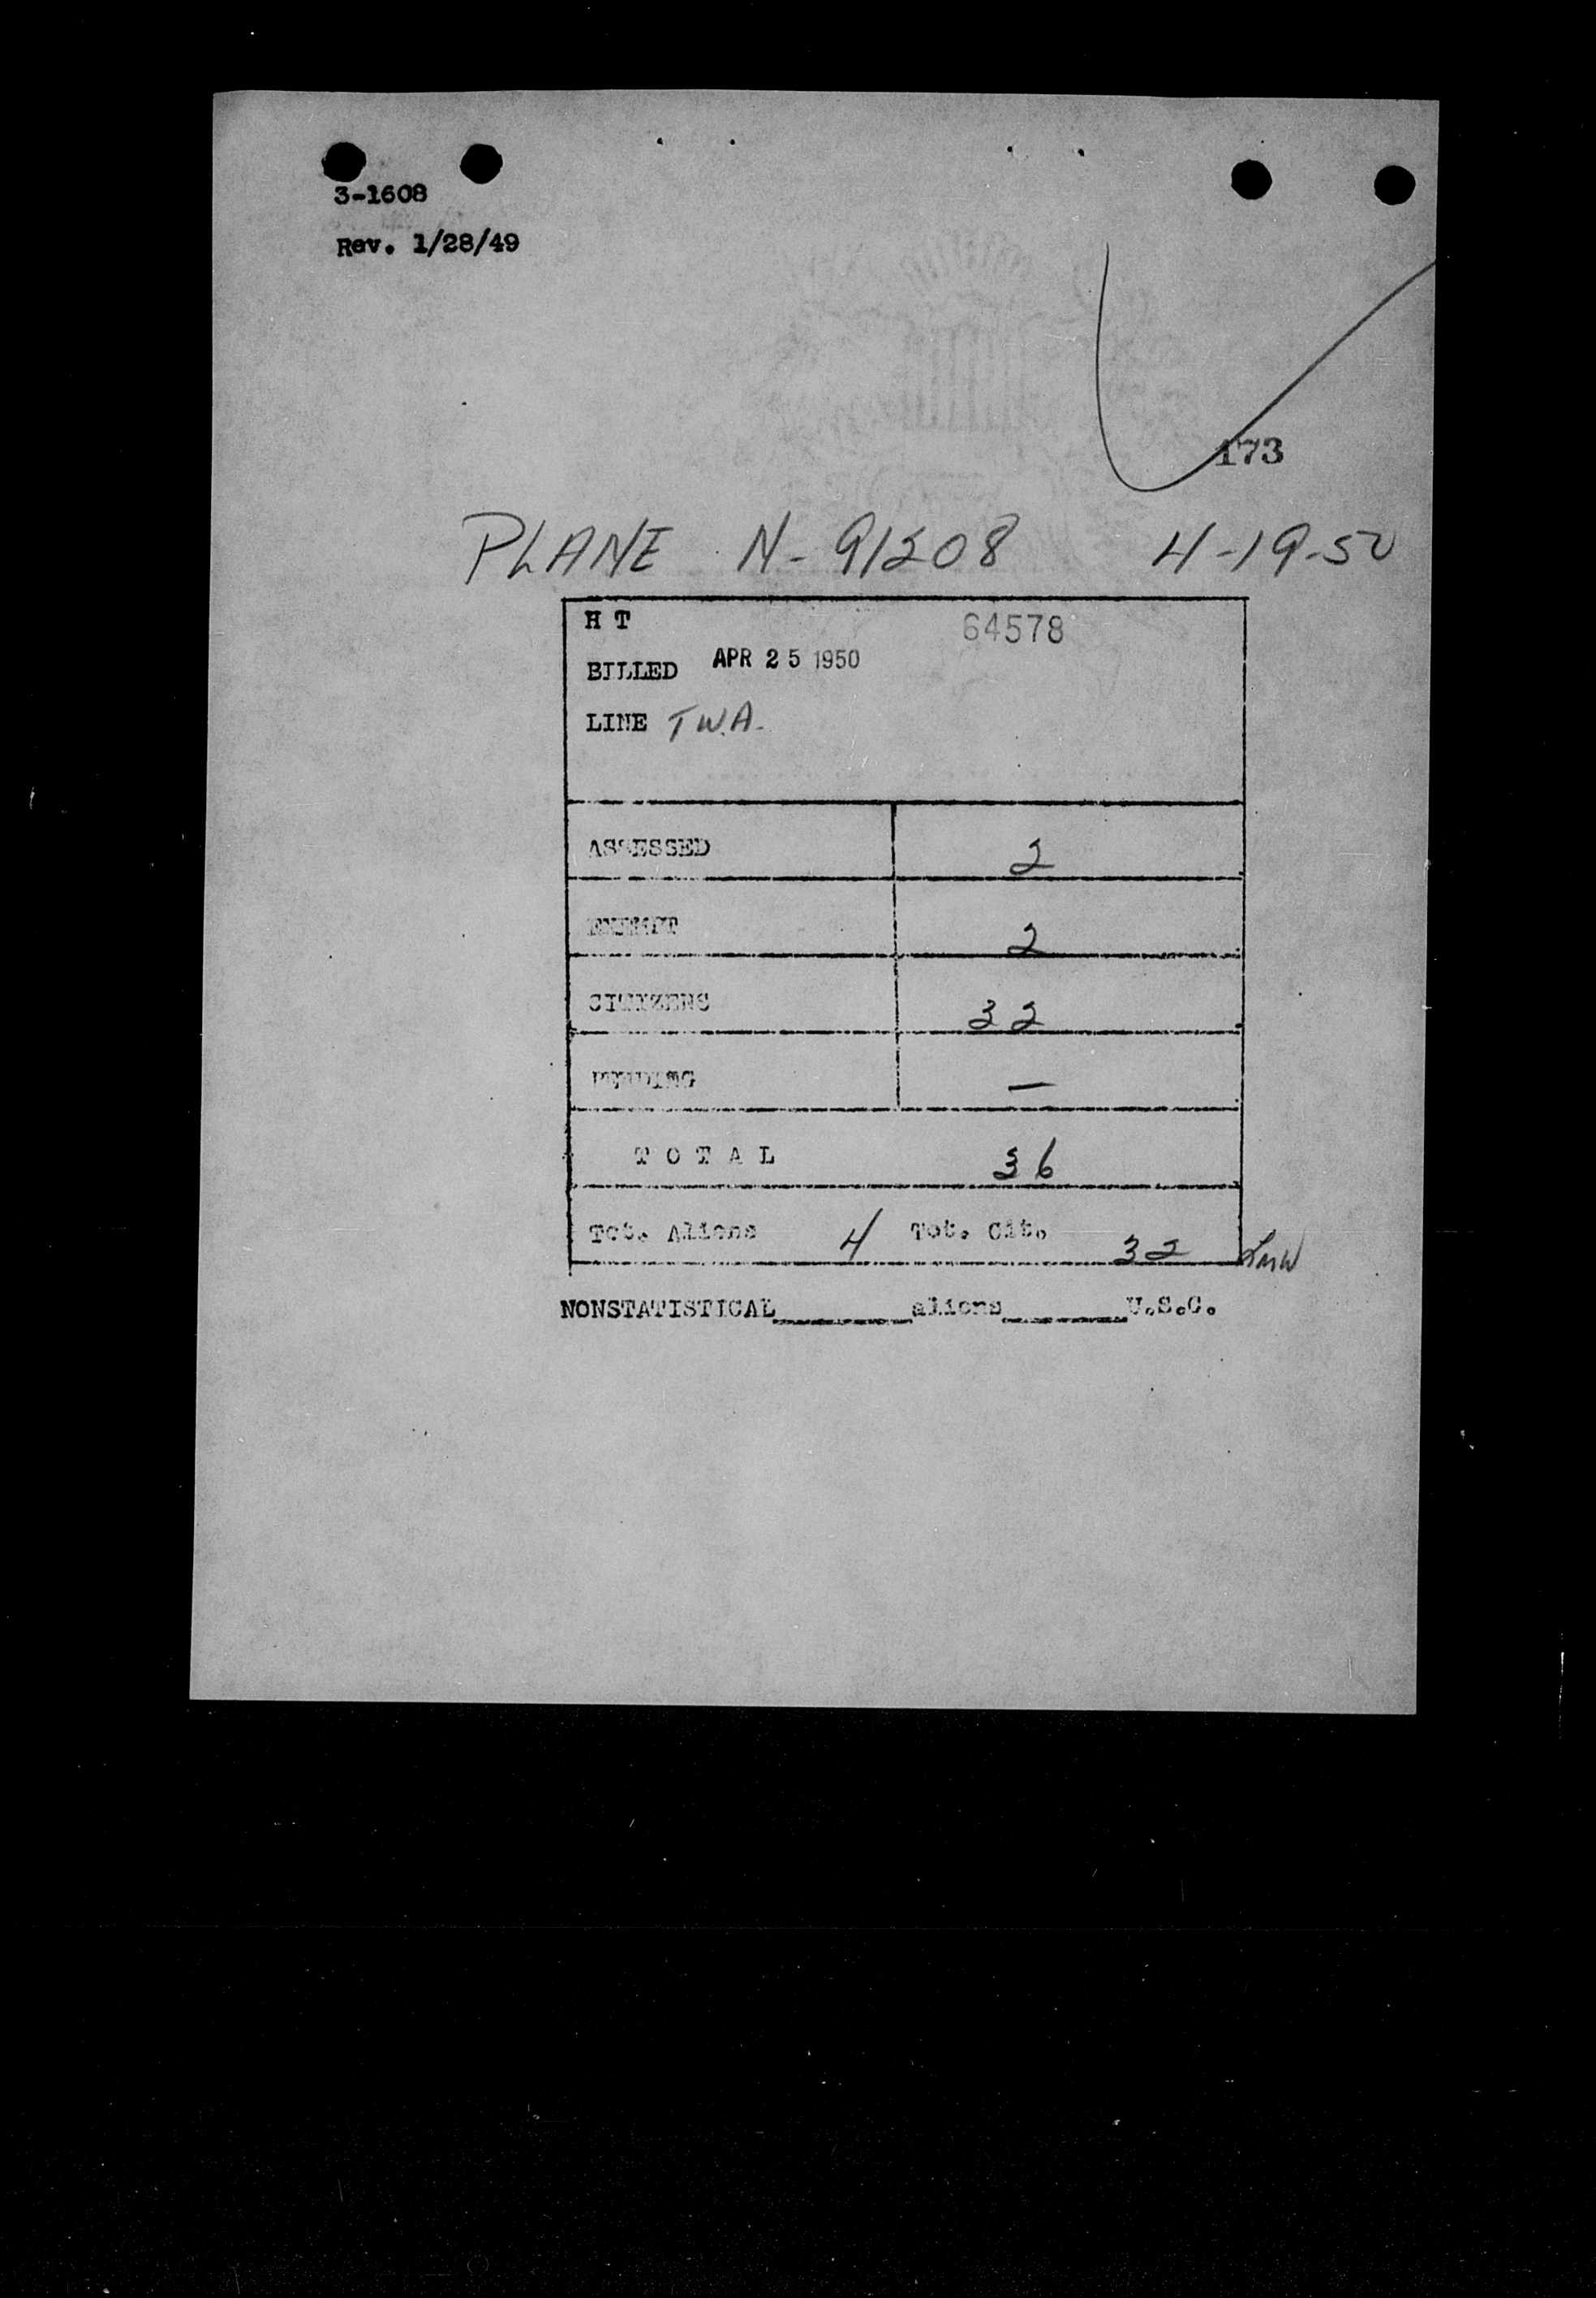 3-1608
Rev. 1/28/49
173
PLANE N-91208 4-19-50
H T 64578
BILLED APR 25 1950
LINE T.W.A.
ASSESSED 2
EXEMPT 2
CITIZENS 32
PENDING —
TOTAL 36
Tot. Aliens 4 Tot. Cit. 32 LMW
NONSTATISTICAL________aliens________U.S.C.